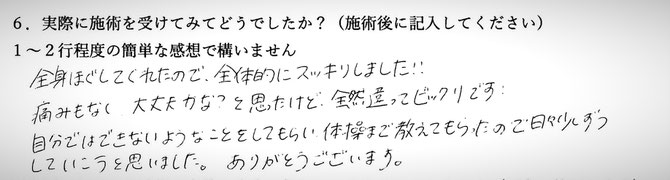 6．実際に施術を受けてみてどうでしたか？（施術後に記入してください）
1～2行程度の簡単な感想で構いません
全身ほぐしてくれたので、全体的にスッキリしました!!
痛みもなく 大丈夫かな？と思たけど、全然違ってビックリです！
自分ではできないようなことをしてもらい、体操まで教えてもらったので日々少しずつ
していこうと思いました。 ありがとうございます。